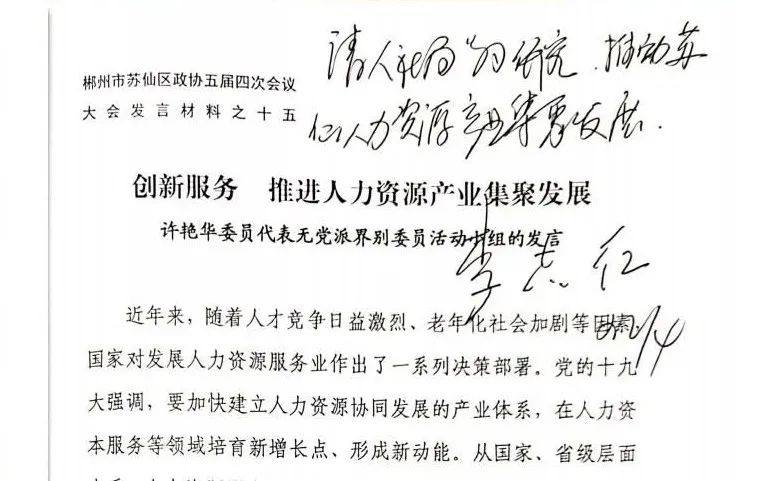 郴州市苏仙区政协五届四次会议
大会发言材料之十五
请人社局研究，推动苏
仙人力资源产业集聚发展．
创新服务 推进人力资源产业集聚发展
许艳华委员代表无党派界别委员活动小组的发言
李志红
近年来，随着人才竞争日益激烈、老年化社会加剧等因素，
国家对发展人力资源服务业作出了一系列决策部署。党的十九
大强调，要加快建立人力资源协同发展的产业体系，在人力资
本服务等领域培育新增长点、形成新动能。从国家、省级层面